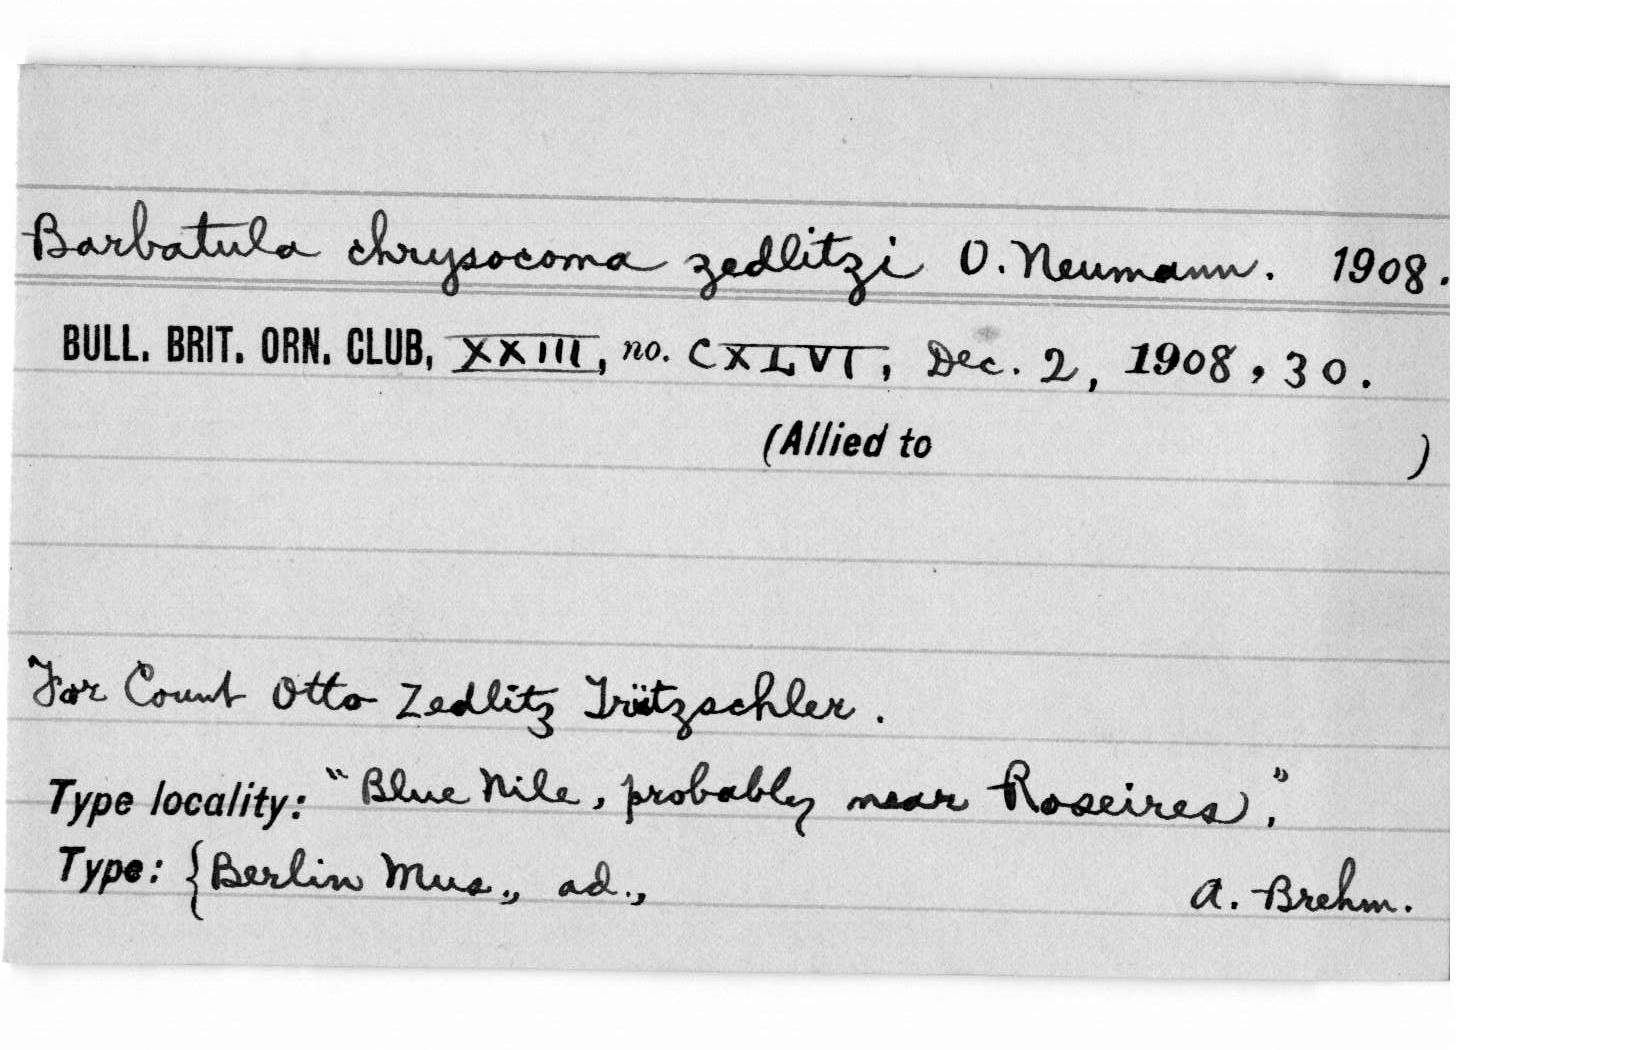 Barbatula chrysocoma zedlitzi O. Neumann. 1908.
BULL. BRIT. ORN. CLUB, XXIII, no. CXLVI, Dec. 2, 1908, 30.
(Allied to )
For Count Otto Zedlitz Trützschler.
Type locality: "Blue Nile, probably near Roseires",
Type: {Berlin Mus., ad., A. Brehm.